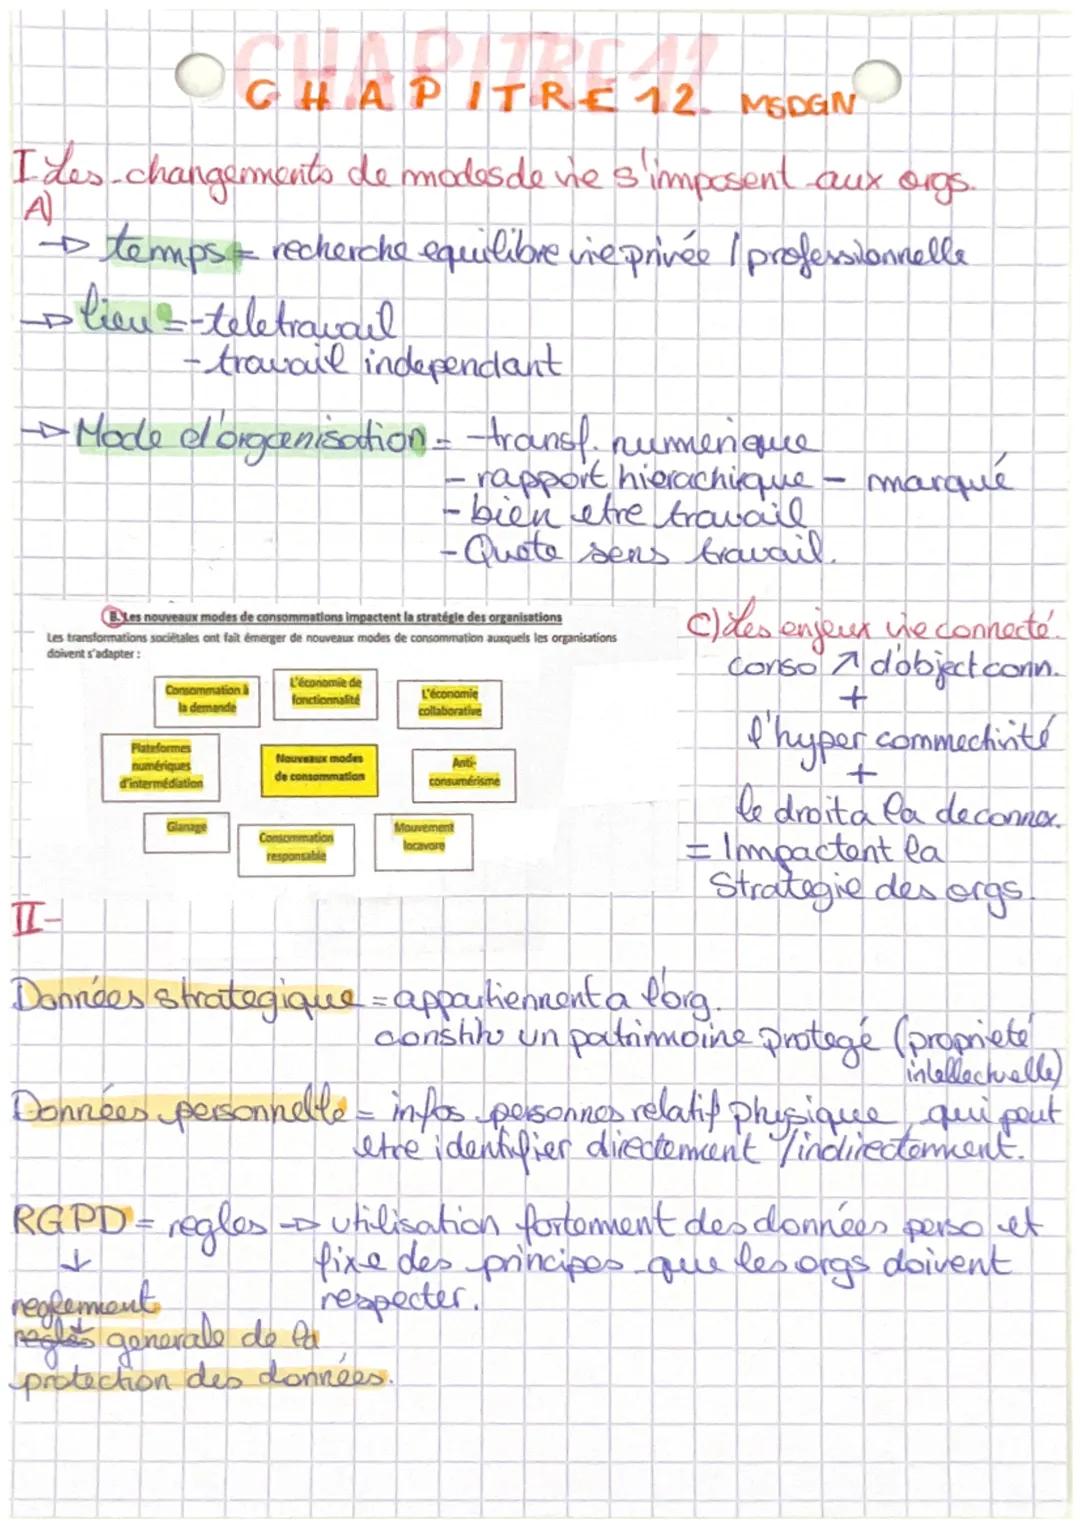 CHAPITRE 12
CHAPITRE 12 MSDGN
I Les changements de modes de vie s'imposent aux orgs.
A)
→ temps = recherche equilibre vie privée / professionnelle
→ lieu = - teletravail
- travail independant
→ Mode d'organisation = - transf. numerique
- rapport hierachique - marqué
- bien etre travail
- Quete sens travail.
B. Les nouveaux modes de consommations impactent la stratégie des organisations
Les transformations sociétales ont fait émerger de nouveaux modes de consommation auxquels les organisations
doivent s'adapter :
Consommation à
la demande
L'économie de
fonctionnalité
L'économie
collaborative
Plateformes
numériques
d'intermédiation
Nouveaux modes
de consommation
Anti-
consumérisme
Glanage
Consommation
responsable
Mouvement
locavore
C) Les enjeux vie connecté.
conso ↗ d'object conn.
+
l'hyper connectivité
+
le droit a la deconnex.
= Impactent la
Strategie des orgs.
II-
Données strategique = appartiennent a l'org.
constitu un patrimoine protegé (proprieté
intellectuelle)
Données personnelle = infos personnes relatif physique, qui peut
etre identifier directement / indirectement.
RGPD = regles → utilisation fortement des données perso et
↓ fixe des principes que les orgs doivent
reglement respecter.
regles generale de la
protection des données.